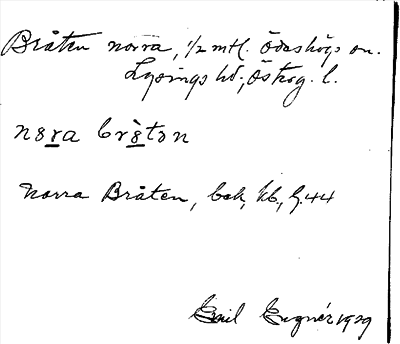 Bråten norra, 1/2 mtl. Ödeshögs sn.
Lysings hd., Östog. l.
nora brötən
Norra Bråten, bok, kb, h. 44
Emil Eugnér 1929